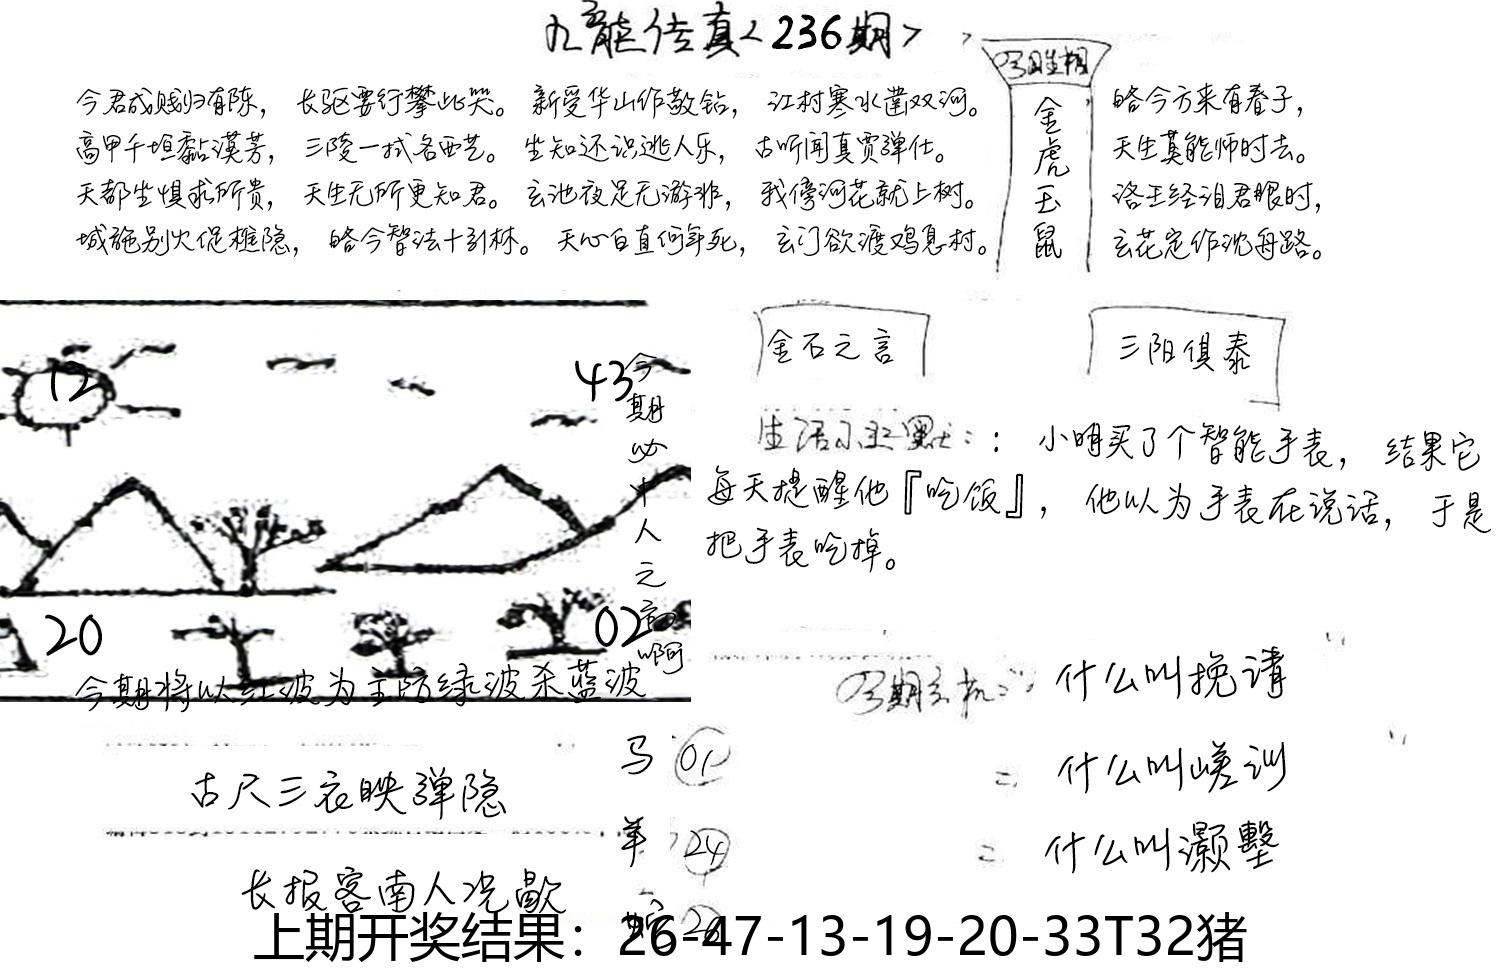 九龙传真<236期>
今君成贱归有陈，长驱要行攀此哭。新受华山作敌钻，江村寒水凿双河。
高甲千坦黏漠芳，三陵一拭各西艺。生知还识逃人乐，古听闻真贾弹仕。
天都坐惧求所贵，天生无所更知君。玄池夜足无游非，我傍河花就上树。
城施别火促椎隐，略今智法十引林。天心白直何年死，玄门欲渡鸡息村。
金虎玉鼠
略今方来有春子，
天生莫能师时去。
洛王经泪君眼时，
玄花定作沈舟路。
12
43
20
02
今期必中人之
啊
今期将以红波为主防绿波杀蓝波
金石之言
三阳俱泰
生活小幽默：：小明买了个智能手表，结果它
每天提醒他『吃饭』，他以为手表在说话，于是
把手表吃掉。
今期玄机：什么叫挽请
=什么叫嵯训
=什么叫灏墼
古尺三衣映弹隐
长报客南人况歇
马 01
羊 24
上期开奖结果：26-47-13-19-20-33T32猪